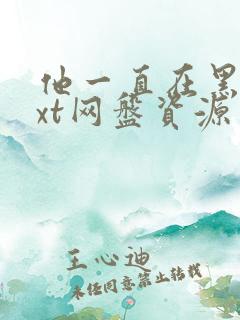 他一直在黑
xt网盘资源
王心迪
未经同意禁止转载